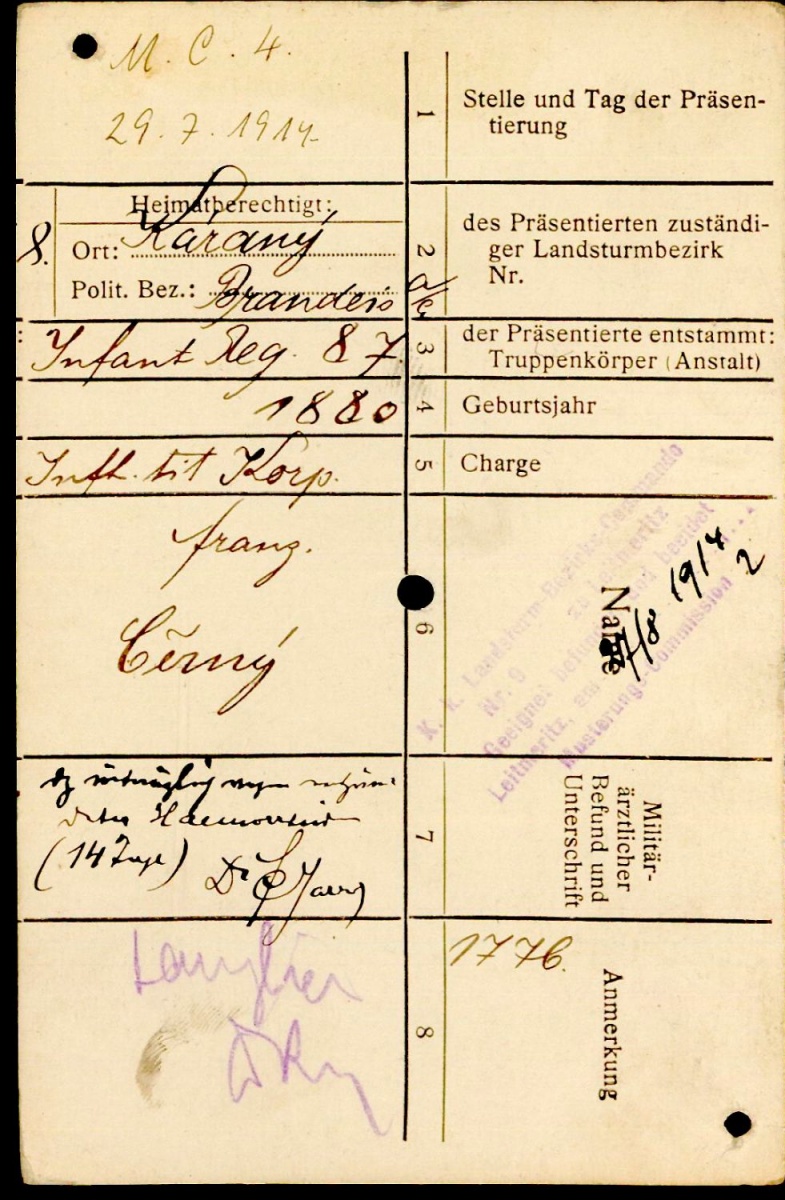 M. C. 4.
29. 7. 1914
1
Stelle und Tag der Präsen-
tierung
Heimatberechtigt:
8.
Ort: Káraný
Polit. Bez.: Brandeis
2
des Präsentierten zuständi-
ger Landsturmbezirk
Nr.
Infant Reg. 87.
3
der Präsentierte entstammt:
Truppenkörper (Anstalt)
1880
4
Geburtsjahr
Inft. tit Korp.
5
Charge
franz.
Černý
6
Name
K. k. Landsturm-Bezirks-Commando
Nr. 9 zu Leitmeritz
Geeignet befunden und beeidet
Leitmeritz, am
7/8 1914
2
Musterungs-Commission
(14 Tage)
Dr
7
Militär-
ärztlicher
Befund und
Unterschrift
tauglich
8
1776.
Anmerkung